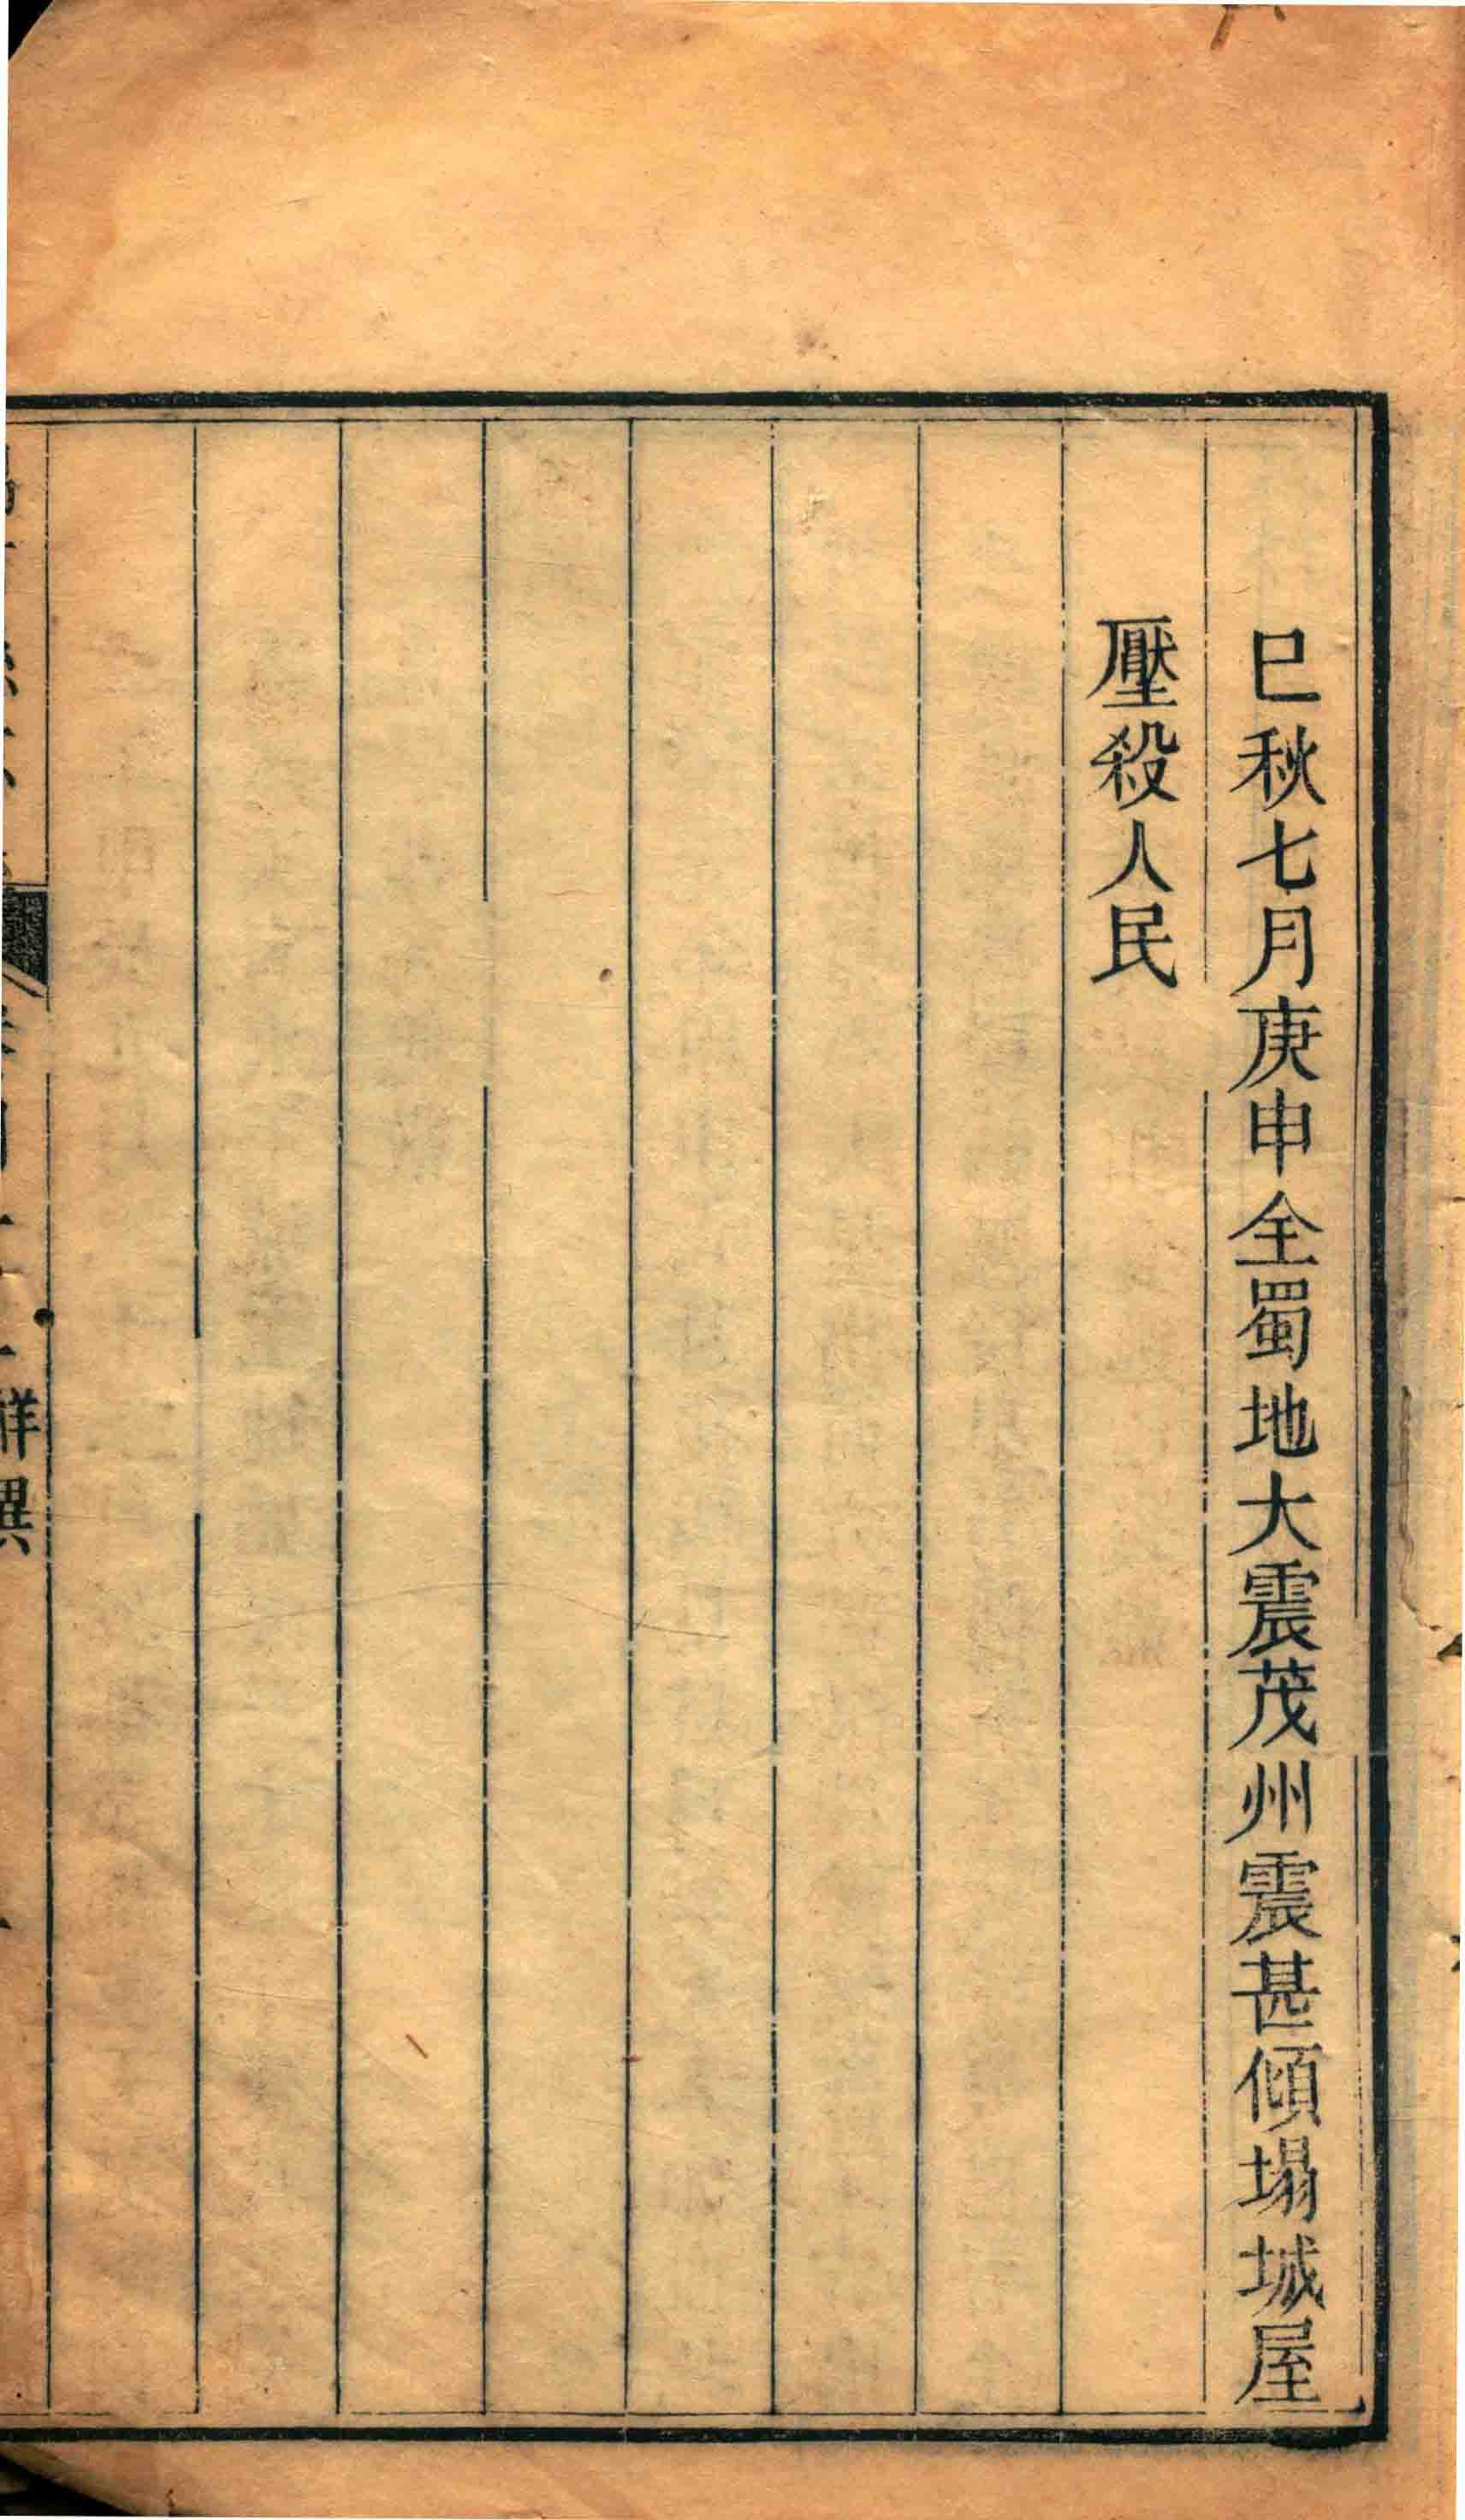 巳秋七月庚申全蜀地大震茂州震甚傾塌城屋
壓殺人民
祥異